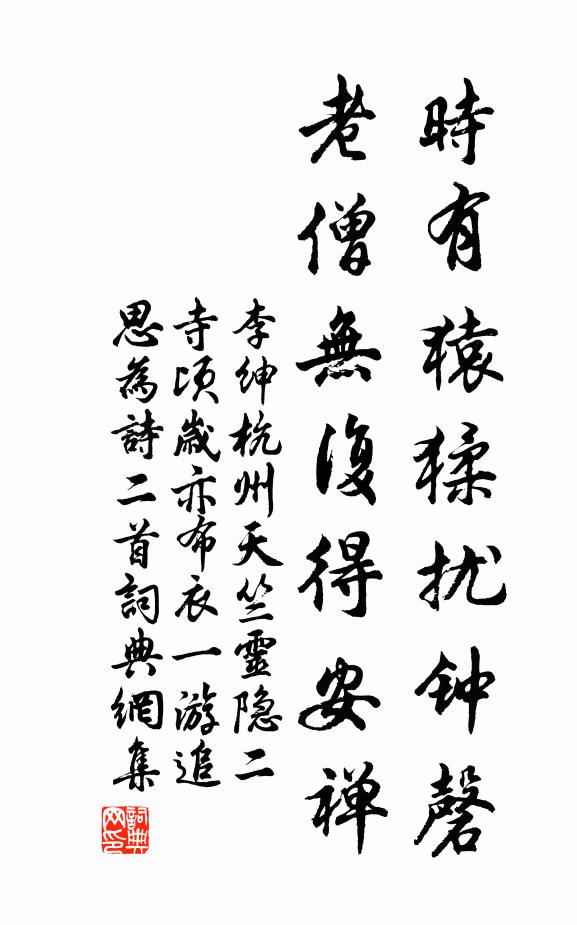 時有猿猱扰钟磬
老僧無復得安禅
李绅杭州天竺靈隐二
寺顷歲亦布衣一游追
思為詩二首詞典網集
詞典网印